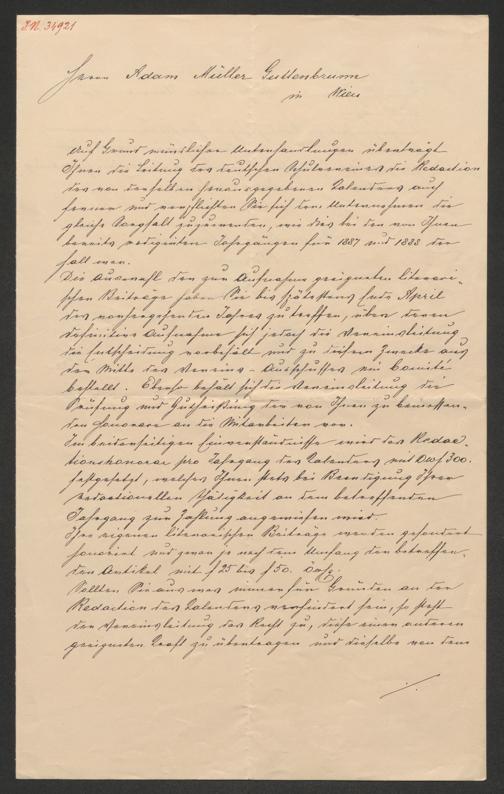 I.N. 34921
Herrn Adam Müller-Guttenbrunn
in Wien
Auf Grund mündlicher Unterhandlungen überträgt
Ihnen die Leitung des deutschen Schulvereines die Redaction
des von demselben herausgegebenen Kalenders auch
fernerhin und verpflichten Sie sich dem Unternehmen die
gleiche Sorgfalt zuzuwenden, wie dies bei den von Ihnen
bereits redigirten Jahrgängen für 1887 und 1888 der
Fall war.
Die Auswahl der zur Aufnahme geeigneten literari-
schen Beiträge haben Sie bis spätestens Ende April
des vorhergehenden Jahres zu treffen, über deren
definitive Aufnahme sich jedoch die Vereinsleitung
die Entscheidung vorbehält und zu diesem Zwecke aus
der Mitte des Vereins-Ausschusses ein Comité
bestellt. Ebenso behält sich die Vereinsleitung die
Prüfung und Gutheißung der von Ihnen zu bemessen-
den Honorare an die Mitarbeiter vor.
Im beiderseitigen Einverständnisse wird das Redac-
tionshonorar pro Jahrgang des Kalenders mit ö.W.f. 300.
festgesetzt, welches Ihnen stets bei Beendigung Ihrer
redactionellen Thätigkeit an dem betreffenden
Jahrgang zur Zahlung angewiesen wird.
Ihre eigenen literarischen Beiträge werden gesondert
honorirt und zwar je nach dem Umfang der betreffen-
den Artikel mit f 25 bis f 50. ö.W.
Sollten Sie aus was immer für Gründen an der
Redaction des Kalenders verhindert sein, so steht
der Vereinsleitung das Recht zu, diese einer anderen
geeigneten Kraft zu übertragen und dieselbe von dem
./.